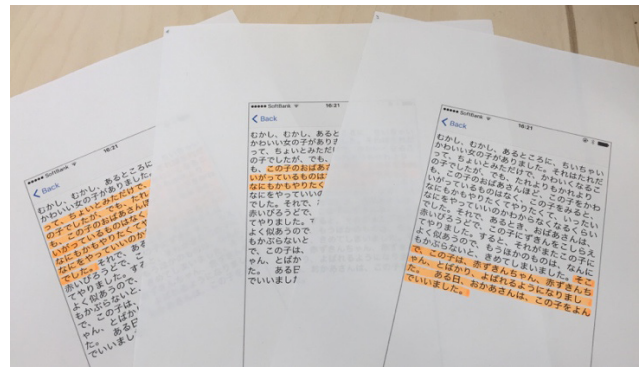 SoftBank 16:21
Back
むかし、むかし、あるところに
かわいい女の子がありました。
って、ちょいとみただけで、
の子でしたが、でも、たれ
も、この子のおばあさんほ
いがっているものはなく
なにもかもやりたくてや
なにをやっていいのか
でした。それで、ある
赤いびろうどで、こ
てやりました。する
よく似あうので、
もかぶらないと、
で、この子は、
ゃん、とばか
た。 ある日
でいいまし
SoftBank 16:21
Back
むかし、むかし、あると
かわいい女の子があり
って、ちょいとみただ
の子でしたが、でも、
も、この子のおばあ
いがっているものは
なにもかもやりたく
なにをやっていいの
でした。それで、
赤いびろうどで、
てやりました。
よく似あうので
もかぶらないと
で、この子は、
ゃん、とばか
た。 ある日
でいいまし
SoftBank 16:21
Back
むかし、むかし、あるところに、ちいちゃい
かわいい女の子がありました。それはたれだ
って、ちょいとみただけで、かわいくなるこ
の子でしたが、でも、たれよりもかれより
も、この子のおばあさんほど、この子をかわ
いがっているものはなく、この子をみると、
なにもかもやりたくてやりたくて、いったい
なにをやっていいのかわからなくなるくらい
でした。それで、あるとき、おばあさんは、
赤いびろうどで、この子にずきんをこしらえ
てやりました。すると、それがまたこの子に
よく似あうので、もうほかのものは、なんに
もかぶらないと、きめてしまいました。そこ
で、この子は、赤ずきんちゃん、赤ずきんち
ゃん、とばかり、よばれるようになりまし
た。 ある日、おかあさんは、この子をよん
でいいました。